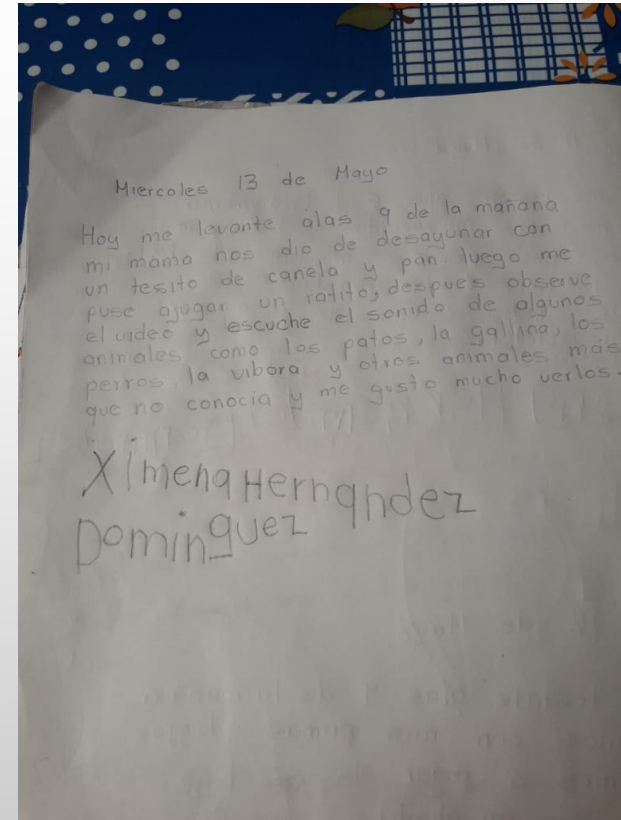 Miercoles 13 de Mayo
Hoy me levante alas 9 de la mañana
mi mama nos dio de desayunar con
un tesito de canela y pan luego me
puse ajugar un ratito, despues observe
el video y escuche el sonido de algunos
animales como los patos, la gallina, los
perros la vibora y otros animales mas
que no conocia y me gusto mucho verlos.
Ximena Hernandez
Dominguez